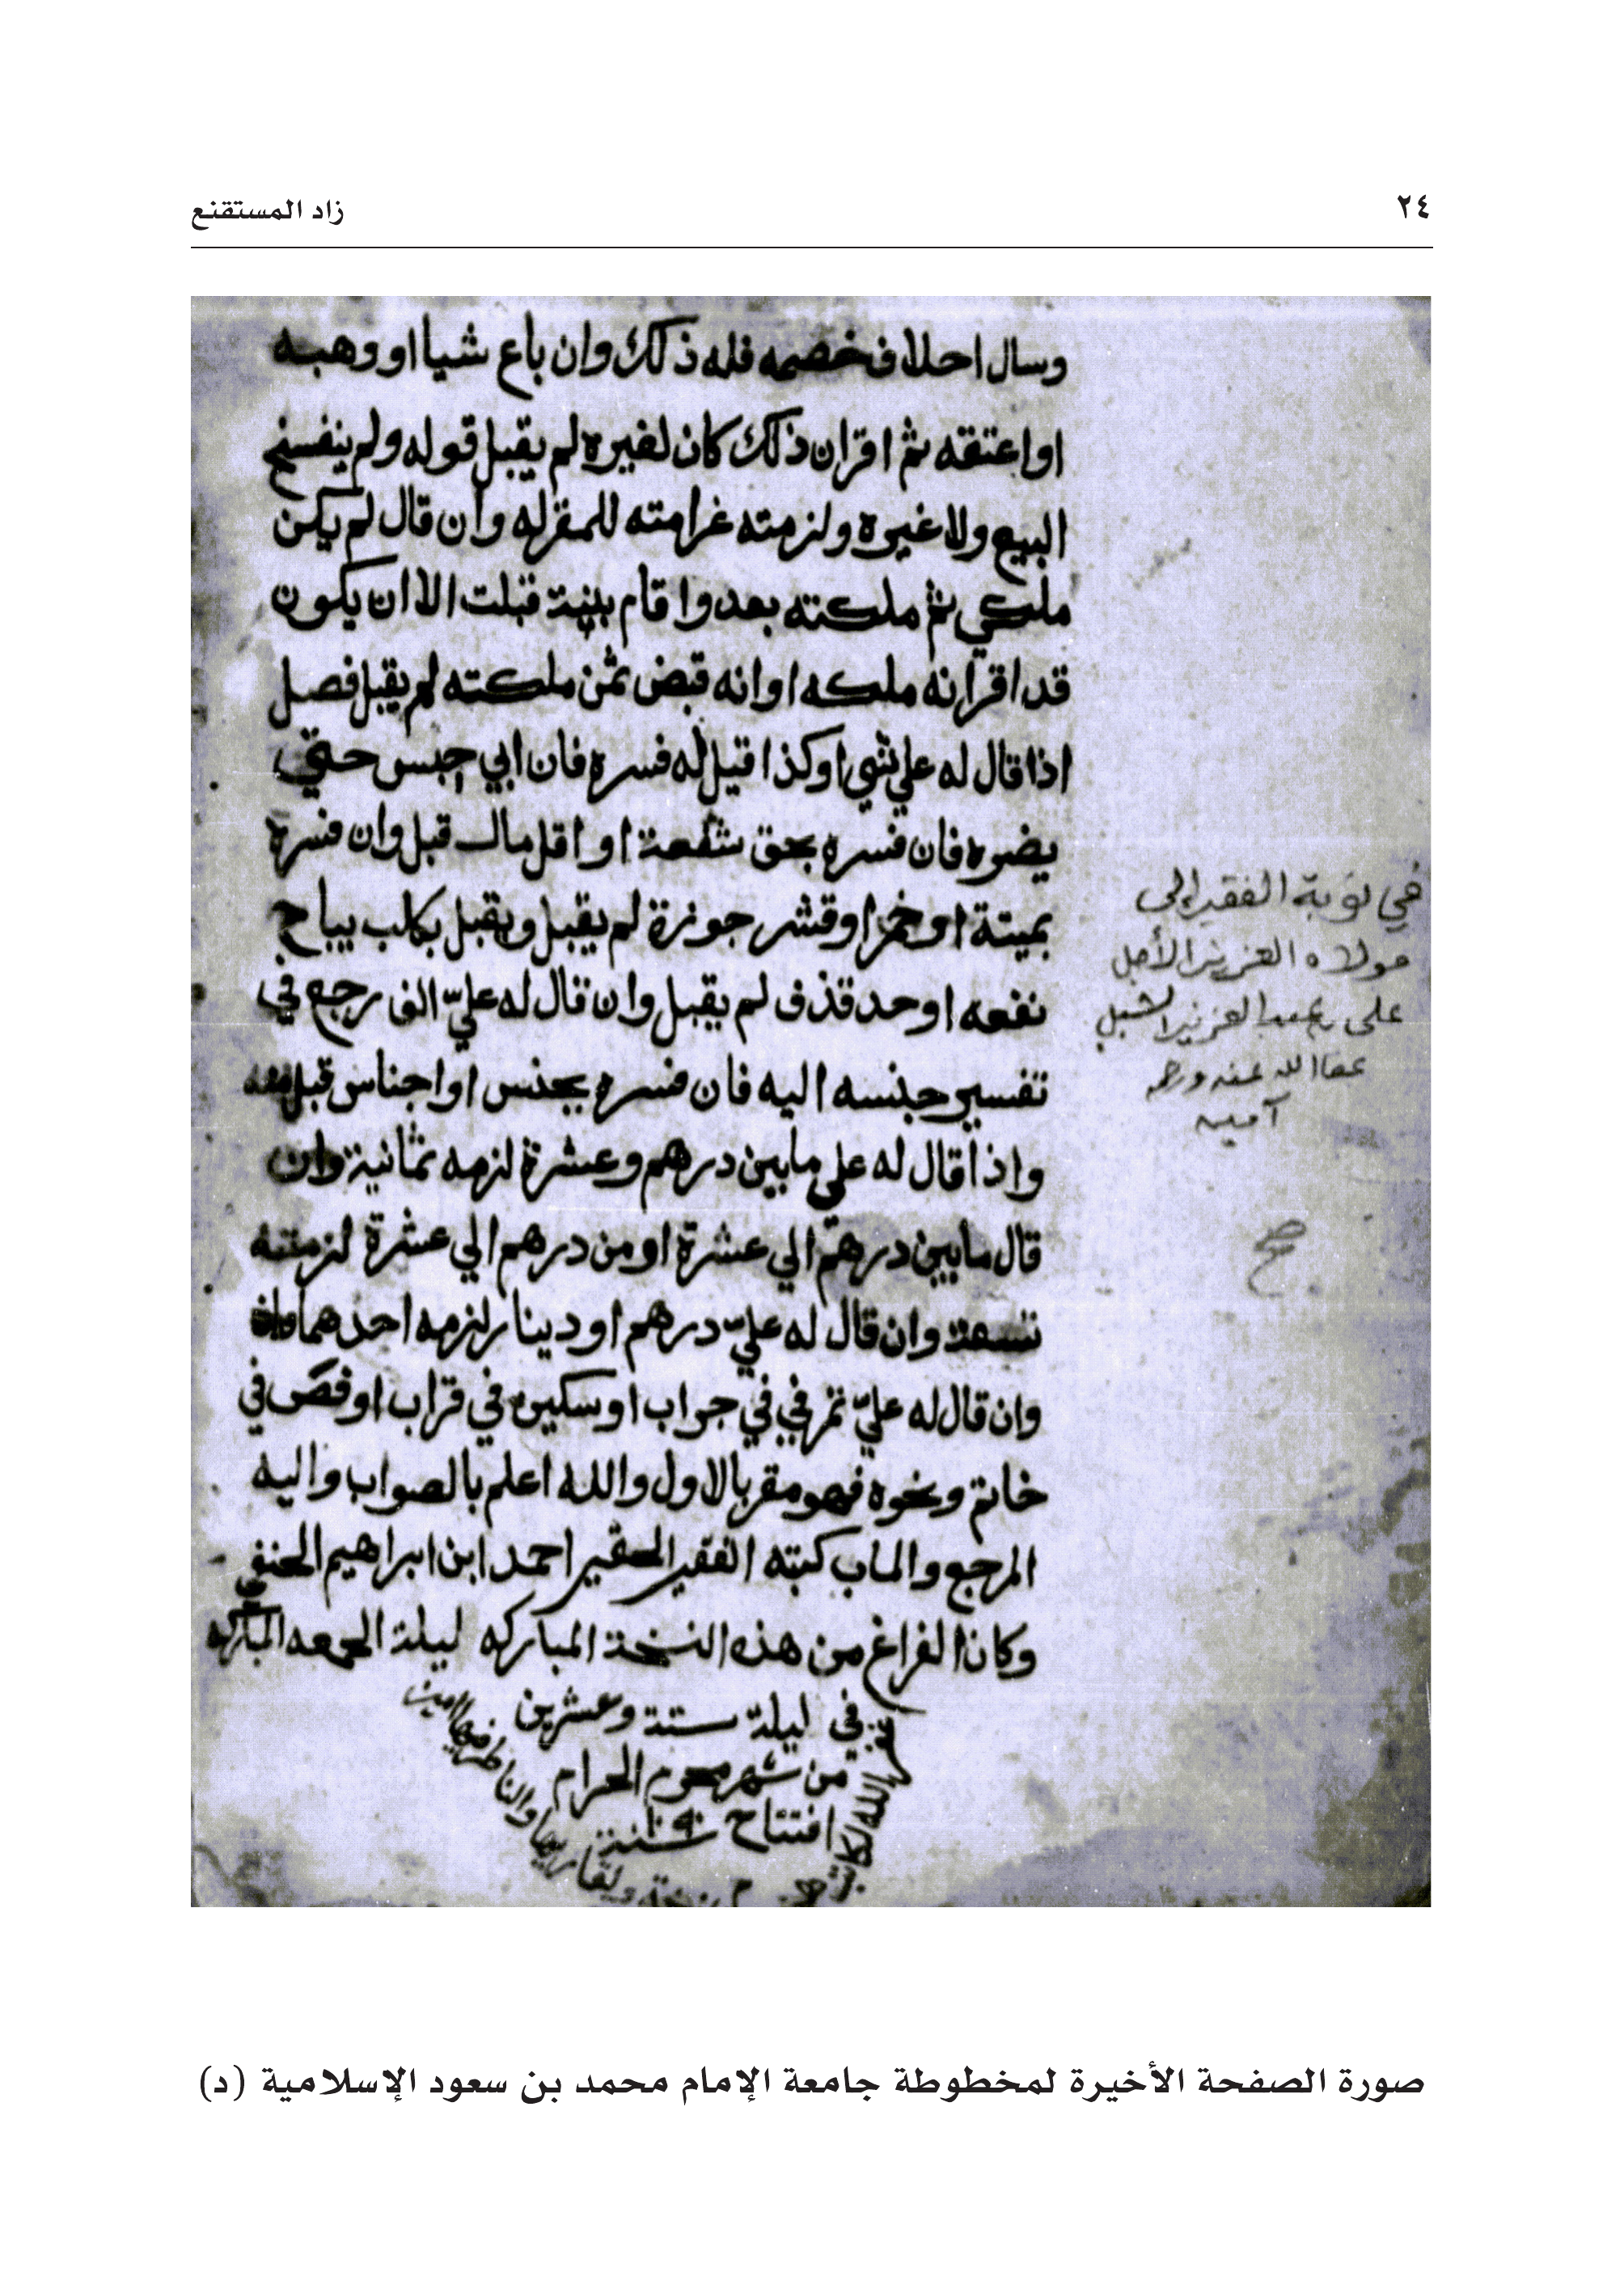 ٢٤
زاد المستقنع
وسال احلاف خصمه فله ذلك وان باع شيا او وهبه
او اعتقه ثم اقران ذلك كان لغيره لم يقبل قوله ولم ينفسخ
البيع ولا غيره ولزمته غرامته للمقر له وان قال لم يكن
ملكي ثم ملكته بعد واقام بينة قبلت الا ان يكون
قد اقر انه ملكه او انه قبض ثمن ملكته لم يقبل فصل
اذا قال له علي شي او كذا قيل له فسره فان ابي حبس حتي
يفسره فان فسره بحق شفعة او اقل مال قبل وان فسره
بميتة او خمر او قشر جوزة لم يقبل ويقبل بكلب يباح
نفعه او حد قذف لم يقبل وان قال له عليّ الف رجع في
تفسير جنسه اليه فان فسره بجنس او اجناس قبل منه
واذا قال له علي ما بين درهم وعشرة لزمه ثمانية وان
قال ما بين درهم الي عشرة او من درهم الي عشرة لزمته
تسعة وان قال له عليّ درهم او دينار لزمه احدهما
وان قال له عليّ تمر في في جراب او سكين في قراب او فص في
خاتم ونحوه فهو مقر بالاول والله اعلم بالصواب واليه
المرجع والماب كتبته الفقير الحقير احمد ابن ابراهيم الحنفي
وكان الفراغ من هذه النسخة المباركه ليلة الجمعه المباركه
في ليلة ستة وعشرين
من شهر محرم الحرام
افتتاح سنة ١٠٩٠
غفر الله لكاتبه
في نوبة الفقير الى
مولاه العزيز الأجل
على بن عبدالعزيز الشبل
عفا الله عنه ورحمه
آمين
صورة الصفحة الأخيرة لمخطوطة جامعة الإمام محمد بن سعود الإسلامية (د)